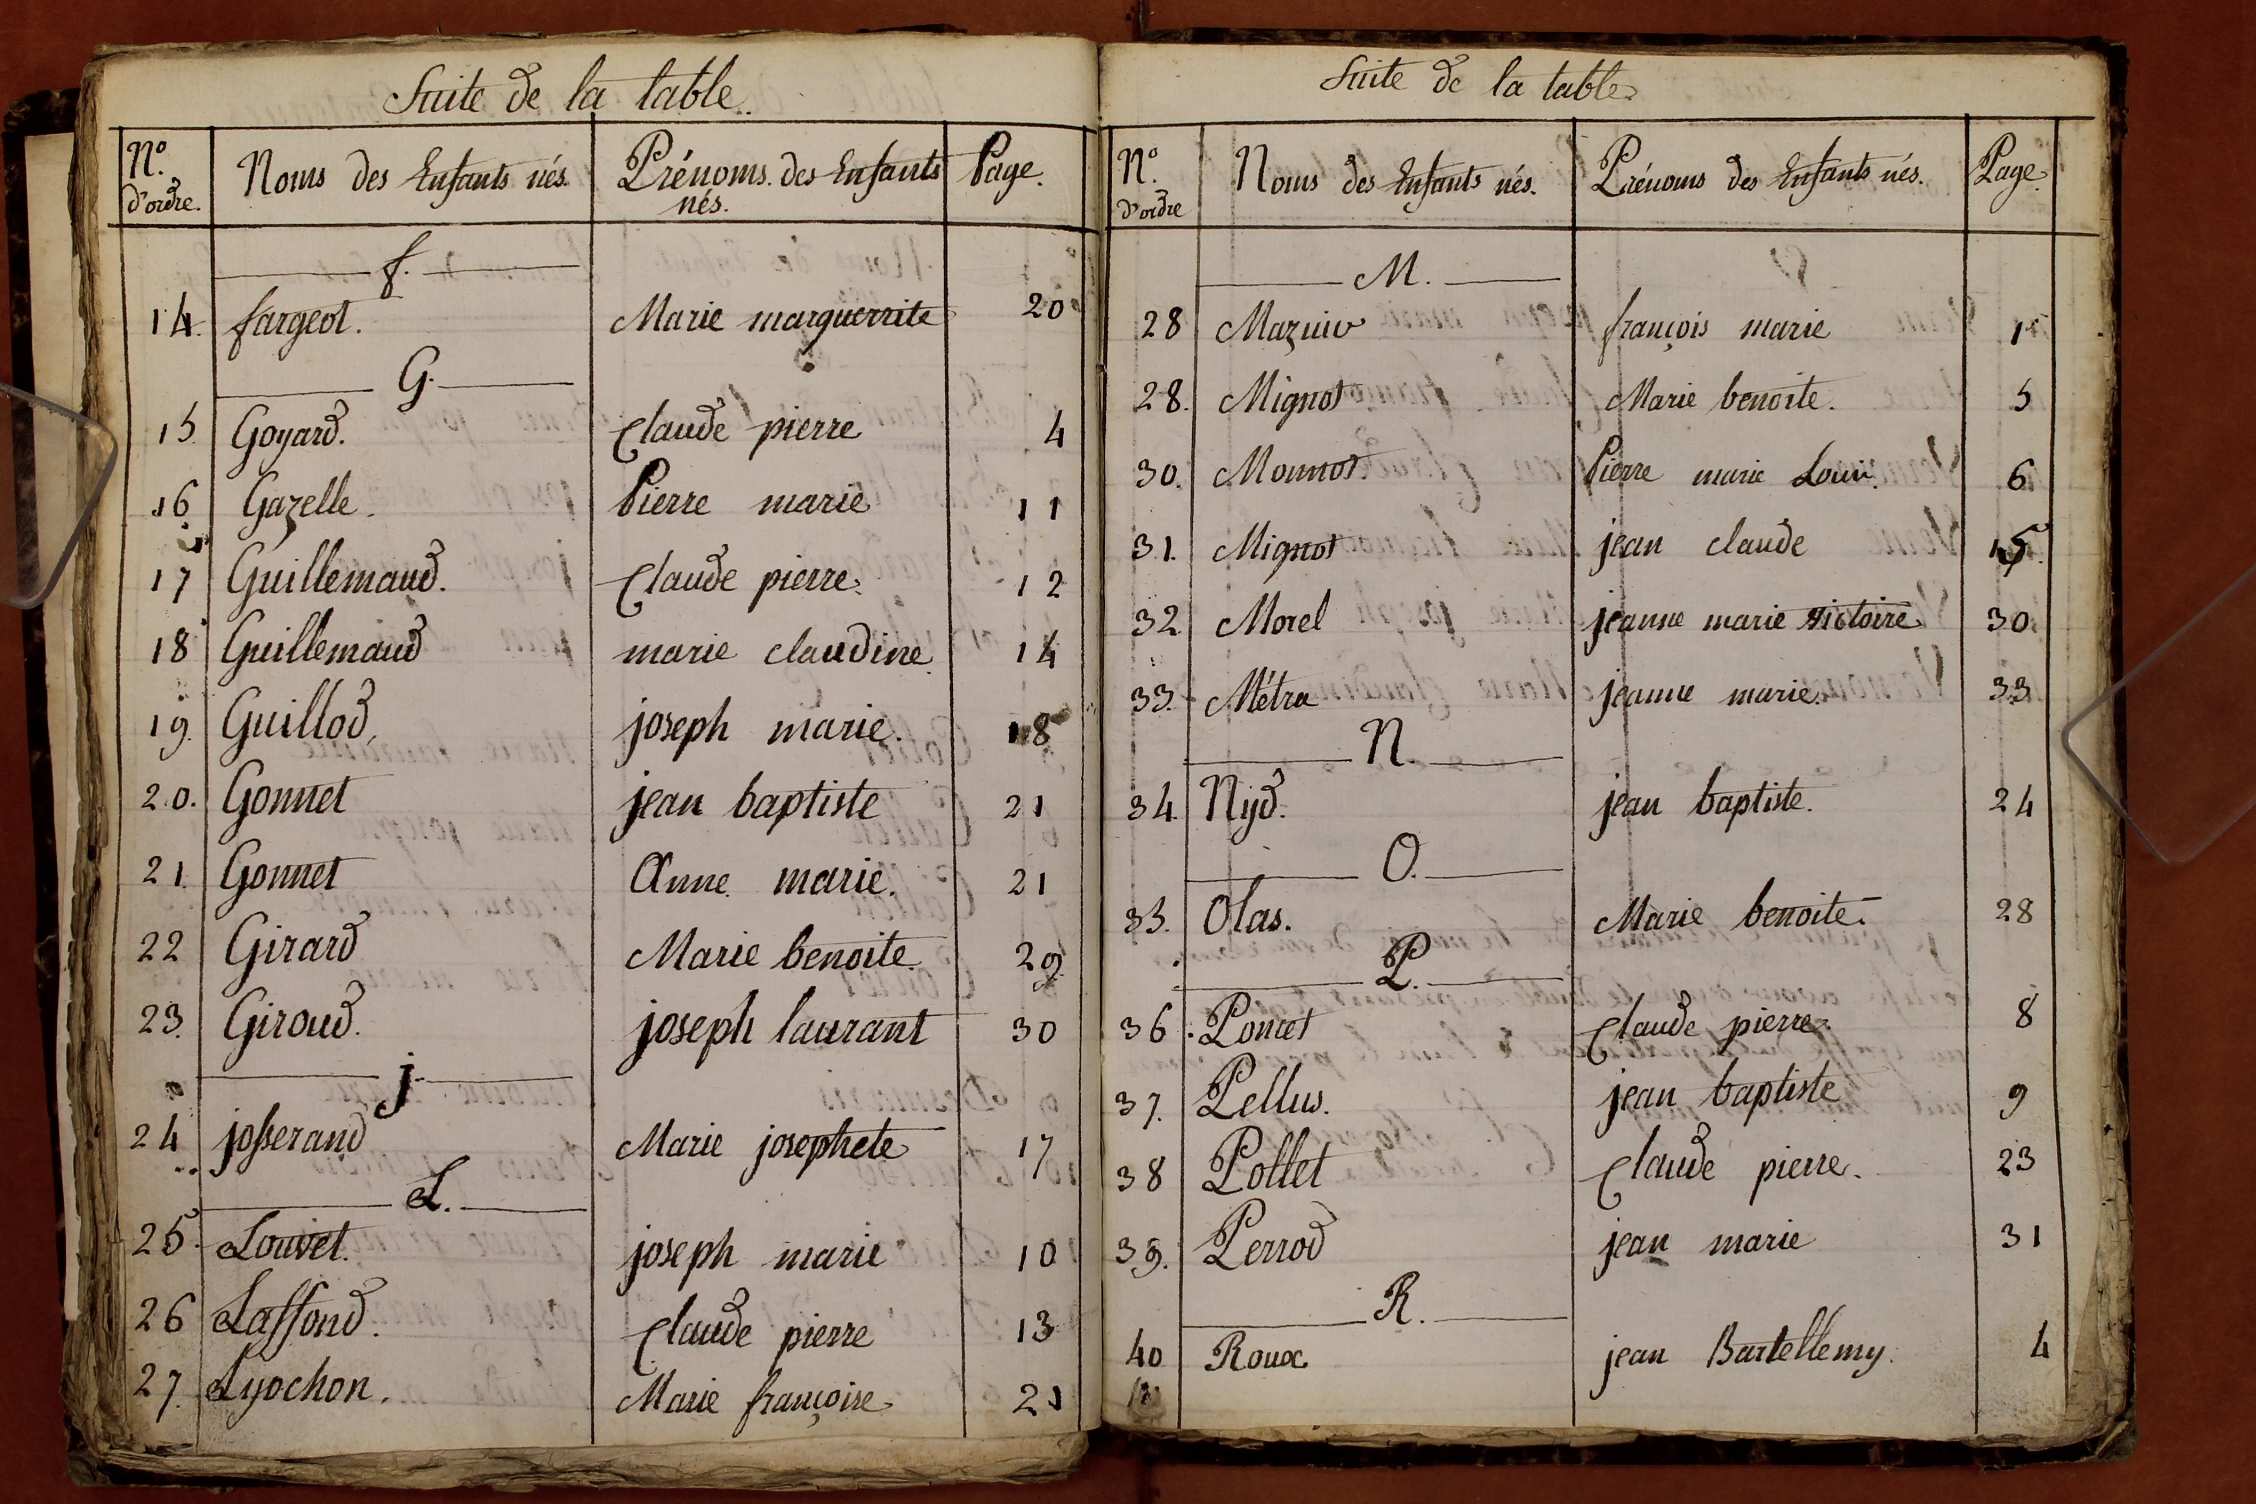 Suite de la table.
N.° d'ordre. Noms des Enfants nés. Prénoms des Enfants nés. Page.
f.
14. fargeot. Marie marguerrite 20
G.
15. Goyard. Claude pierre 4
16 Gazelle. Pierre marie 11
17 Guillemaud. Claude pierre. 12
18 Guillemaud marie claudine 14
19. Guillod, joseph marie. 18
20. Gonnet jean baptiste 21
21. Gonnet Anne marie. 21
22 Girard Marie benoite. 29.
23. Giroud. joseph laurant 30
j.
24 josserand Marie josephete 17
L.
25. Louvet. joseph marie 10
26 Laffond. Claude pierre 13
27. Lyochon. Marie françoise 21
Suite de la table
N.° d'ordre Noms des Enfants nés. Prénoms des Enfants nés. Page.
M.
28 Mazuiv françois marie 1
28. Mignot Marie benoite. 5
30. Monnot. Pierre marie Louis. 6
31. Mignot jean claude 15.
32. Morel jeanne marie victoire 30
33. Métra jeanne marie. 33
N.
34. Nyd. jean baptiste. 24
O.
35. Olas. Marie benoite. 28
P.
36. Poncet Claude pierre. 8
37. Pellus. jean baptiste 9
38 Pollet Claude pierre. 23
39. Perrod jean marie 31
R.
40 Roux jean Bartellemy. 4